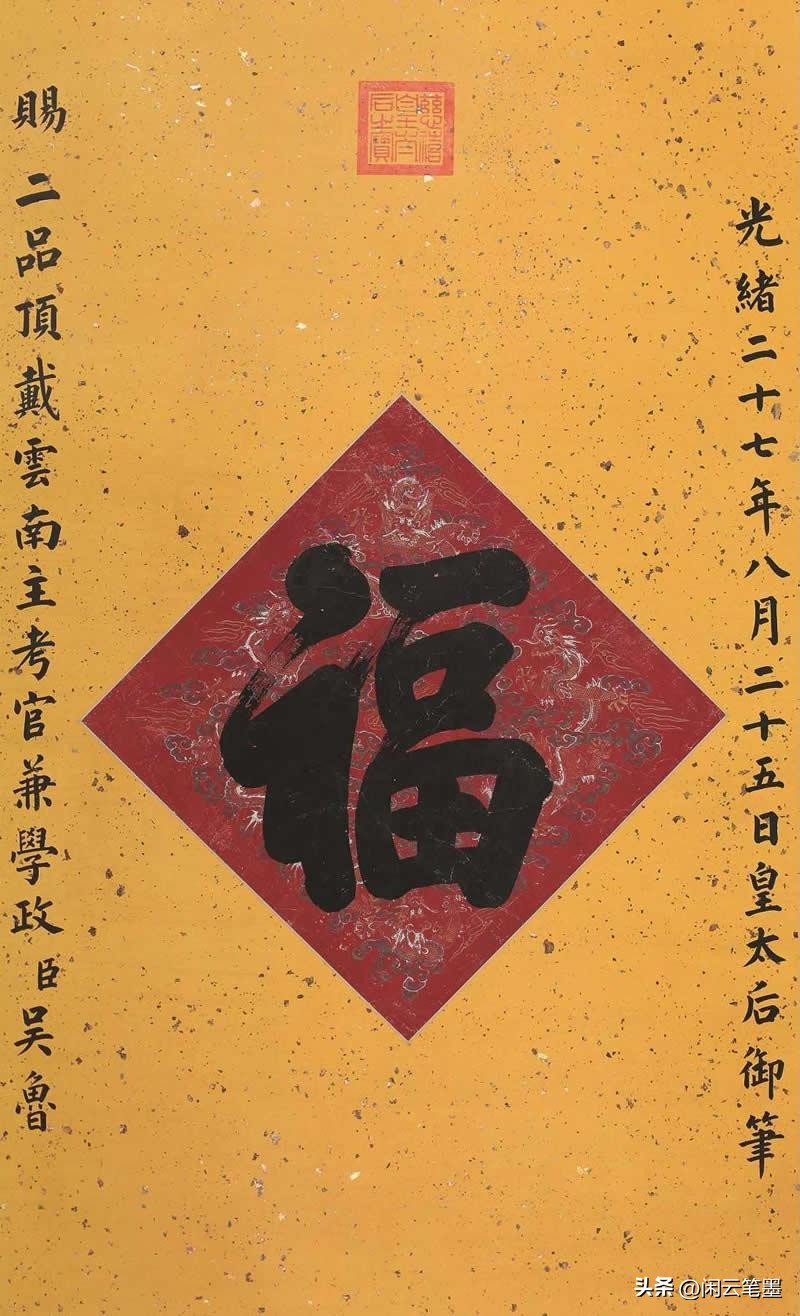 慈禧
皇太
后之寶
光緒二十七年八月二十五日皇太后御筆
福
賜二品頂戴雲南主考官兼學政臣吳魯
头条 @闲云笔墨